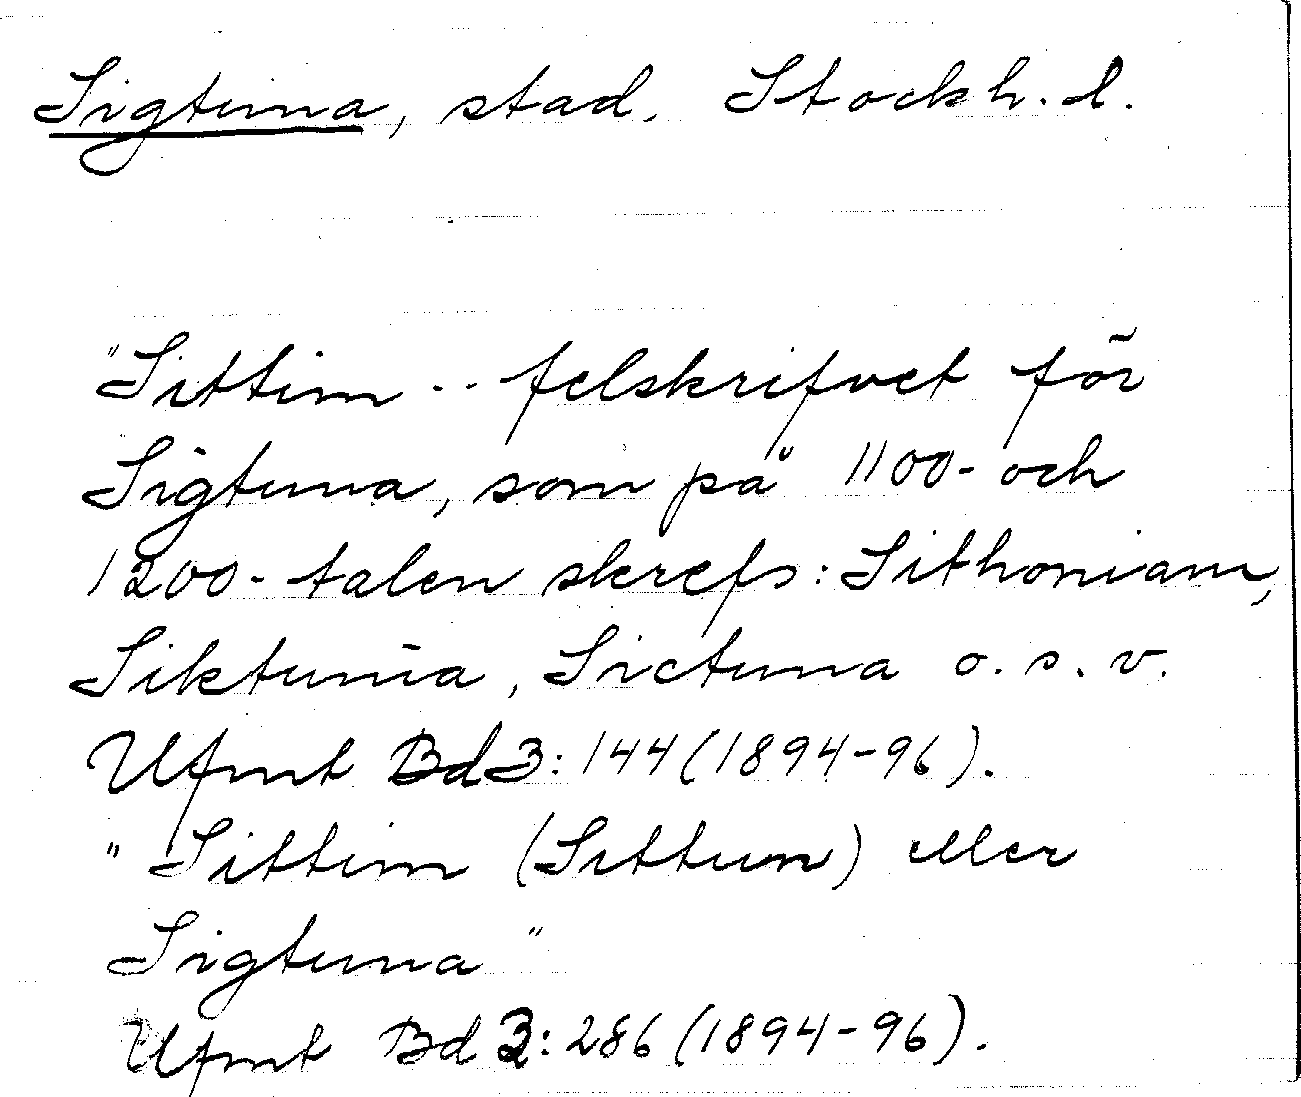 Sigtuna, stad, Stockh. l.
"Sittim -- felskrifvet för
Sigtuna, som på 1100- och
1200-talen skrefs: Sithoniam,
Siktunia, Sictuna o. s. v.
Ufmt Bd 3: 144 (1894-96).
"Sittim (Sittun) eller
Sigtuna"
Ufmt Bd 3: 286 (1894-96).